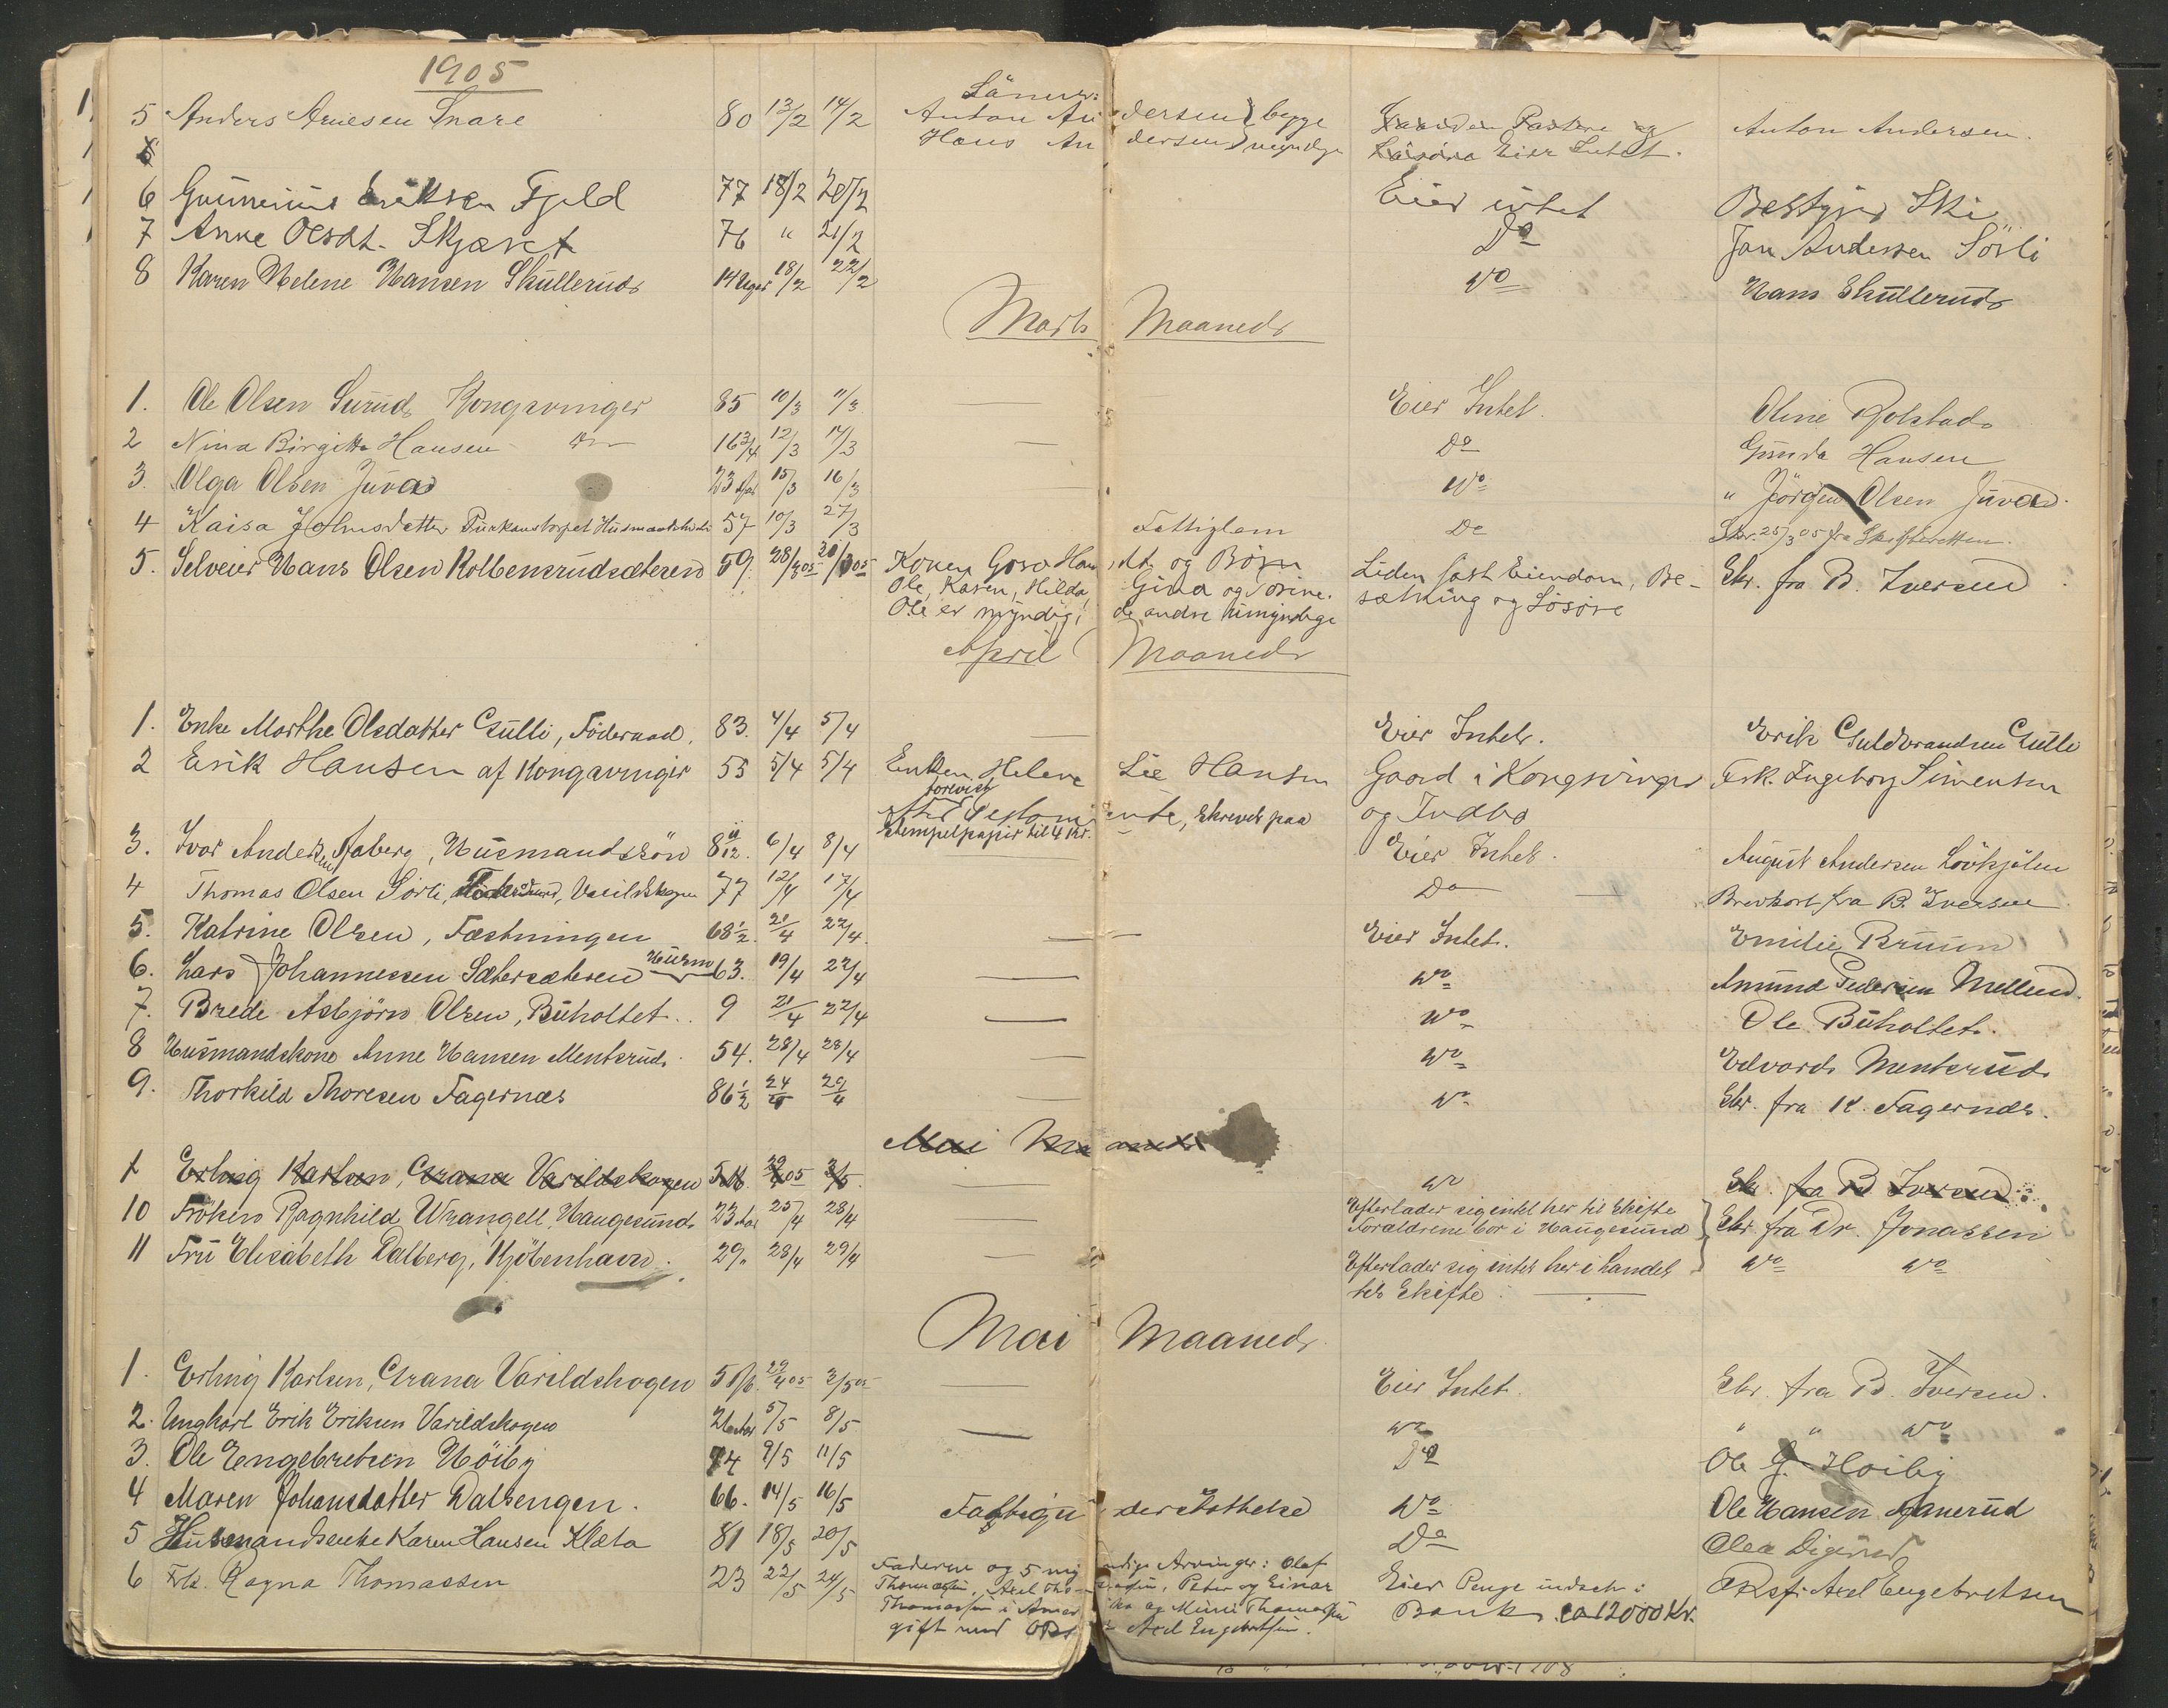 1905
5 Anders Arnesen Snare 80 13/2 14/2 Sönner: Anton Andersen } begge Anton Andersen.
Hans Andersen } myndige Eier Intet.
6 Gunnerius Eriksen Fjeld 77 18/2 20/2 Eier intet Bestyrer Ski
7 Anne Olsdt. Skjæret 76 " 21/2 Do Jon Andersen Sörli
8 Karen Helene Hansen Skullerud 14 Uger 18/2 22/2 Do Hans Skullerud
Marts Maaned
1. Ole Olsen Surud Kongsvinger 85 10/3 11/3 — Eier Intet. Oline Rolstad
2 Nina Birgitte Hansen Do 16 3/4 12/3 14/3 — Do Gunda Hansen
3. Olga Olsen Juvad 23 15/3 16/3 — Do " Jörgen Olsen Juvad.
4 Kaisa Johnsdatter Husmands 57 10/3 27/3 Fattiglem Do Skr. 25/3 05 fra Skifteretten.
5. Selveier Hans Olsen Kolbensrudsæteren 59. 28/3 05 Konen Goro Hansdt. og Börn Liden fast Eiendom, Be- Skr. fra B. Iversen
Ole, Karen, Hilda, Gina og Torine. sætning og Lösöre
Ole er myndig, de andre umyndige
April Maaned
1. Enke Marthe Olsdatter Gulli, Föderaad. 83. 4/4 5/4 — Eier Intet. Erik Guldbrandsen Gulli
2 Erik Hansen af Kongsvinger 55 5/4 5/4 Enken Helene Lie Hansen Gaard i Kongsvinger Frk. Ingeborg Simensen
forevist
Testamente, skrevet paa og Indbo
Stempelpapir til 4 Kr.
3. Ivar Andersen Aaberg, Husmandssön 8 11/12. 6/4 8/4 — Eier Intet. August Andersen Lövhjølen
4 Thomas Olsen Sörli, Varildskogen 77 12/4 17/4 Do — Brevkort fra B. Iversen
5. Katrine Olsen, Fæstningen 68 1/2. 21/4 22/4. — Eier Intet. Emilie Bruun
6. Lars Johannesen Sætersæteren Husm 63. 19/4 22/4 — Do Amund Pedersen Mellem.
7. Brede Asbjörn Olsen, Buholtet.. 9 21/4 22/4 — Do Ole Buholtet.
8 Husmandskone Anne Hansen Mentsrud. 54. 23/4 28/4 — Do Edvard Mentsrud
9. Thorkild Thoresen Fagernæs 86 1/2 24/4 29/4 — Do Skr. fra K. Fagernæs.
Mai Maaned
1 Erling Karlsen, Grana Varildskogen 5 Mb. 29/4 05 3/5. — Do Skr. fra B. Iversen.
10 Fröken Ragnhild Wrangell, Haugesund. 23 Aar 25/4 28/4 — Efterlader sig intet her til Skifte
Forældrene bor i Haugesund } Skr. fra Dr. Jonassen
11 Fru Elisabeth Dalberg, Kjöbenhavn. 29. 28/4 29/4 — Efterlader sig intet her i Landet Do Do
til Skifte. —
Mai Maaned.
1. Erling Karlsen, Grana Varildskogen 5 Mb. 29/4 05 3/5 05 — Eier Intet. Skr. fra B. Iversen.
2. Ungkarl Erik Eriksen Varildskogen 26 Aar 5/5 8/5 — Do " " Do
3. Ole Engebretsen Höiby 74 9/5 11/5 Do Ole G. Höiby
4 Maren Johansdatter Dalsengen. 66. 14/5 16/5 Fattigunderstöttelse Do Ole Hansen Aanerud
5 Husmandsenke Karen Hansen Klæta 81 18/5 20/5 Do Olea Digerud
6 Frk. Ragna Thomassen 23 22/5 24/5 Faderen og 5 myndige Arvinger: Olaf
Thomassen, Axel Thomassen, Peter og Einar Eier Penge indsat i Axel Engebretsen
Thomassen i Amerika og Mimi Thomassen Bank ca 12000 Kr.
gift med Axel Engebretsen.